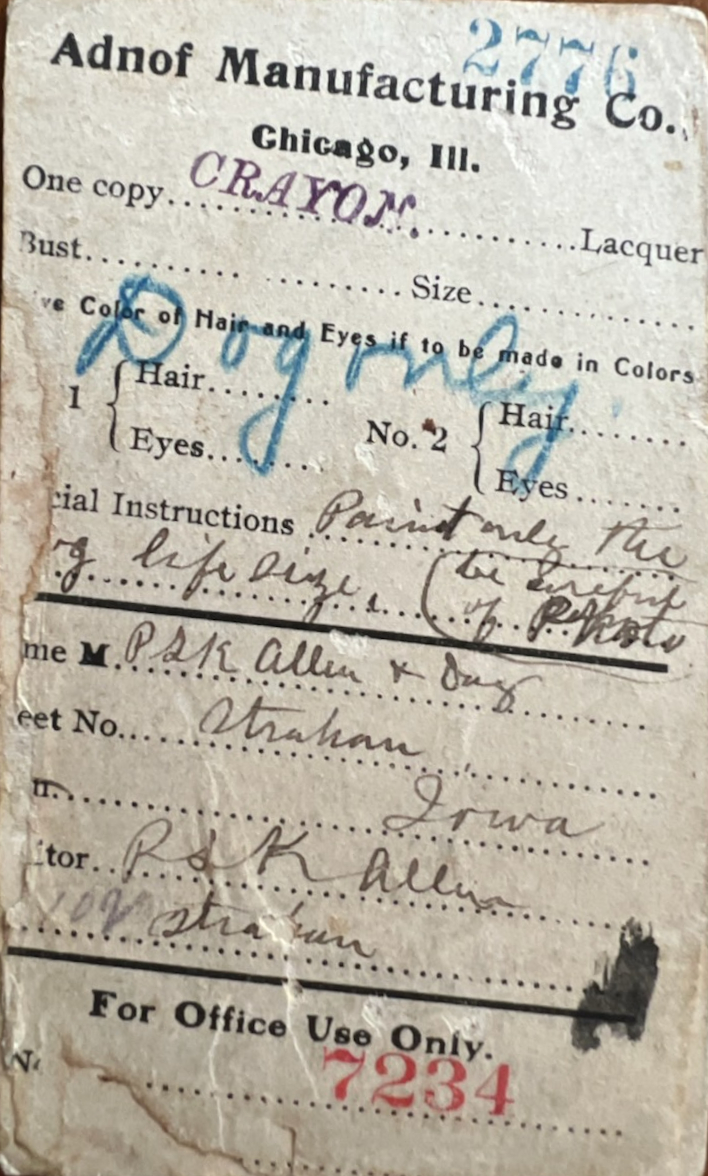 2776
Adnof Manufacturing Co.
Chicago, Ill.
One copy CRAYON. Lacquer
Bust Size
ve Color of Hair and Eyes if to be made in Colors
Dog only
1 { Hair No. 2 { Hair
Eyes Eyes
cial Instructions Paint only the
og life size. (be careful
of Photo
me M P S K Allen & Dog
eet No. Strahan
n. Iowa
tor P S K Allen
Strahan
For Office Use Only.
No
7234